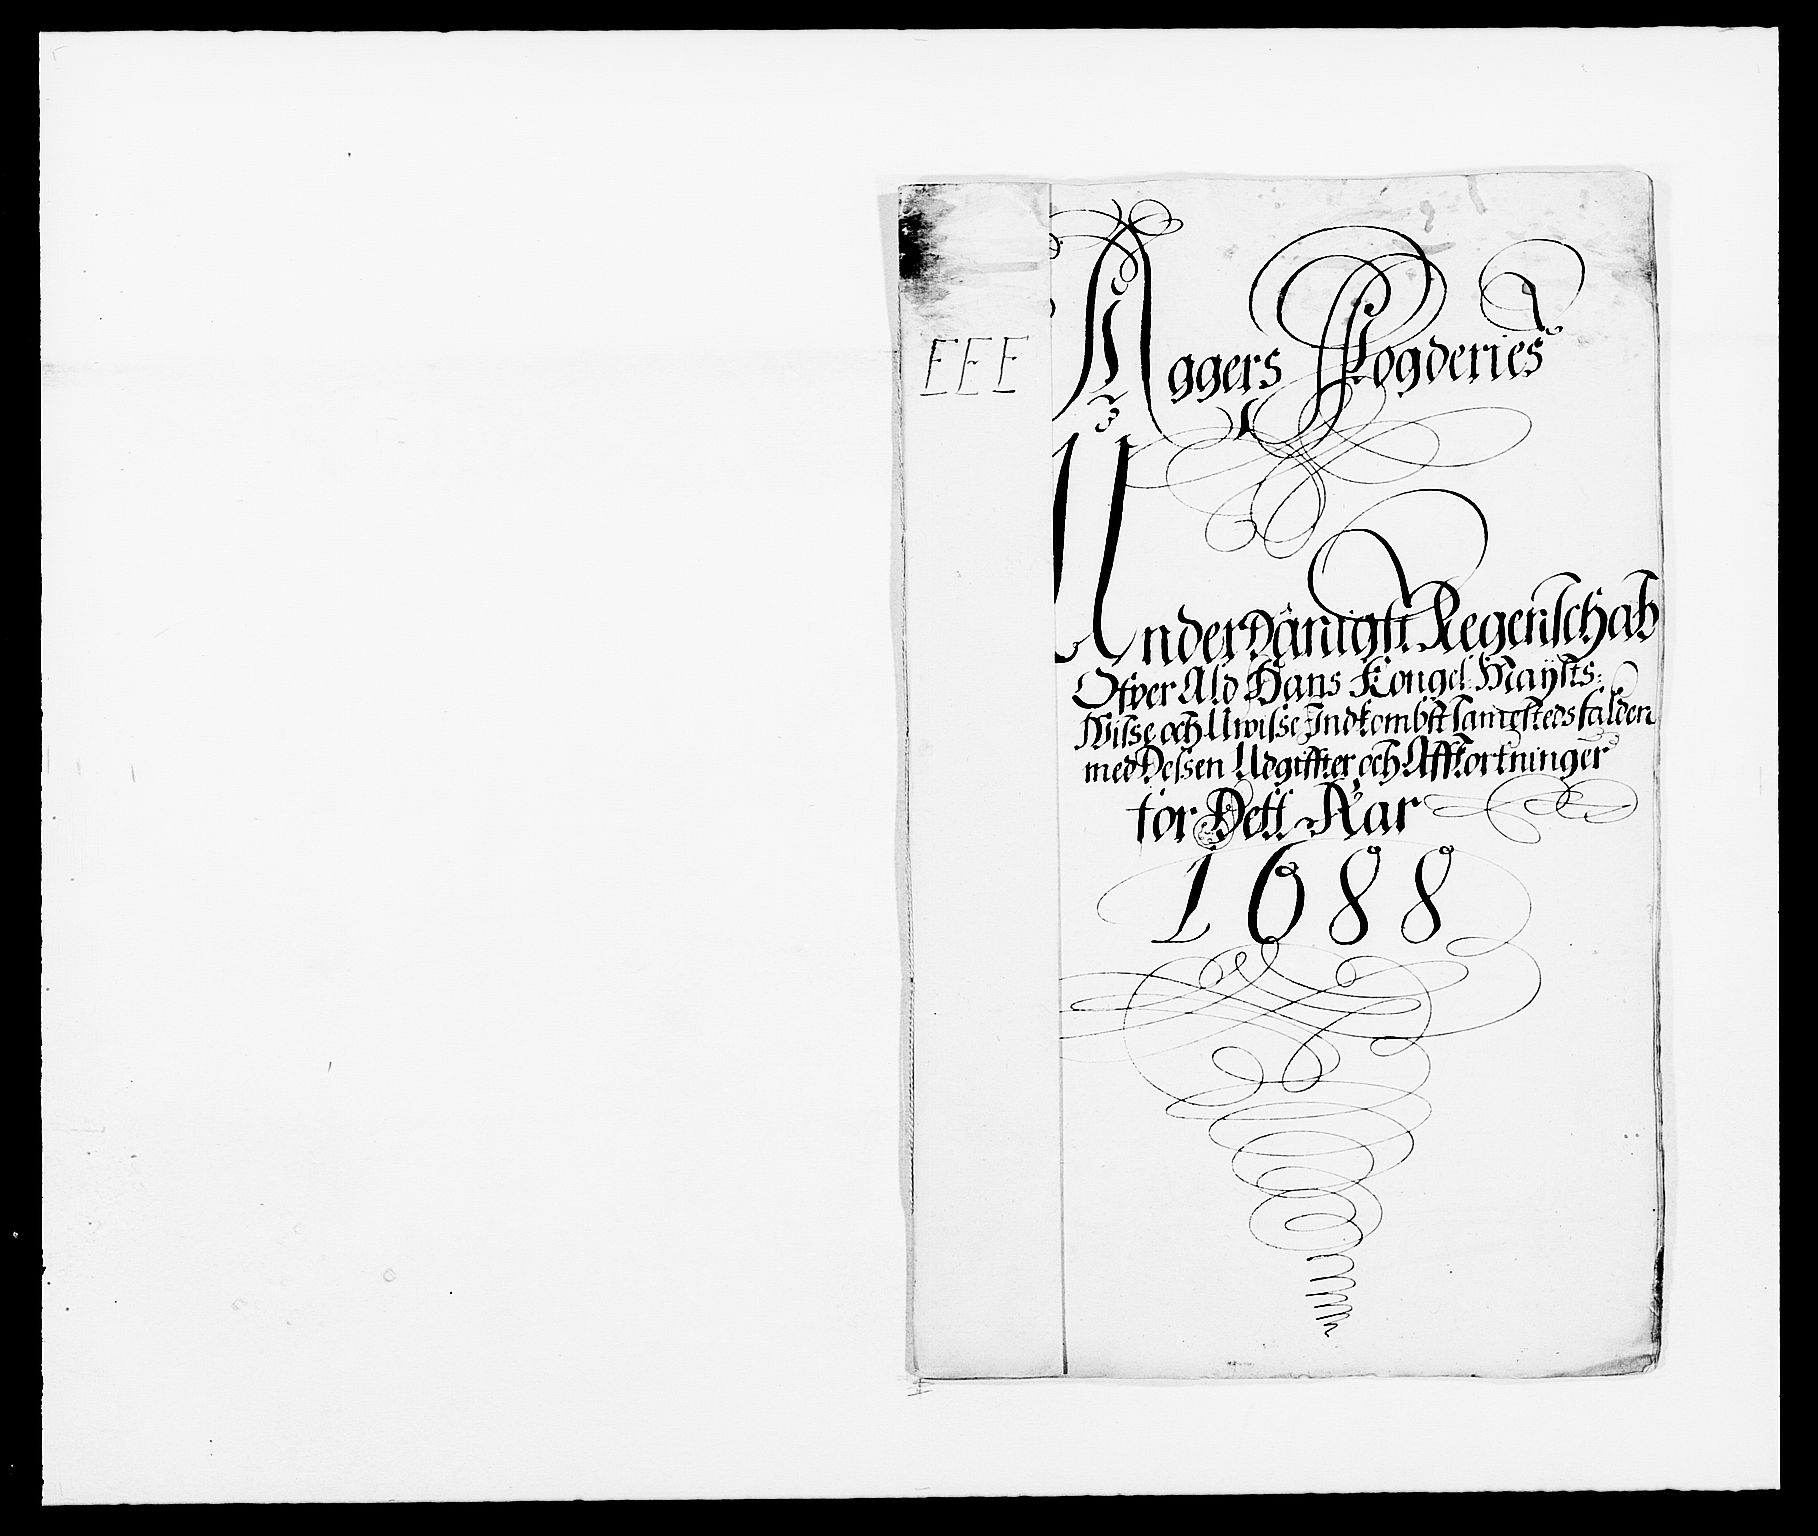 EEE
Aggers Fogderies
UnderDanigst Regenschab
Ofver Ald Hans Kongel: Mayhts:
Wisse och Uwisse Indkombst samesteds falden
med Dessen Udgiffter och Affkortninger
for Dett Aar
1688